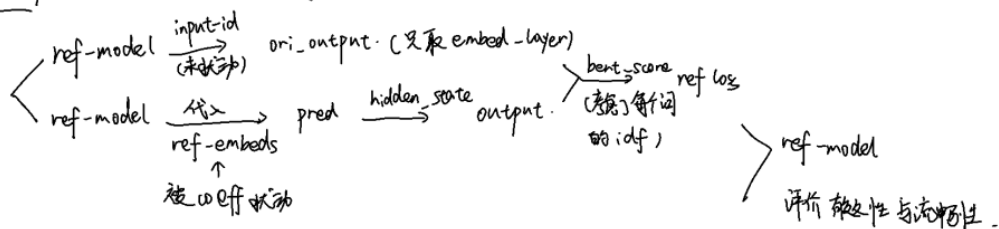 ref-model input-id (未扰动) ori_output. (只取 embed_layer)
ref-model 代入 ref-embeds pred hidden_state output.
被 coeff 扰动
bert_score ref loss
(考虑了每个词
的 idf)
ref-model
评价 与流畅性.